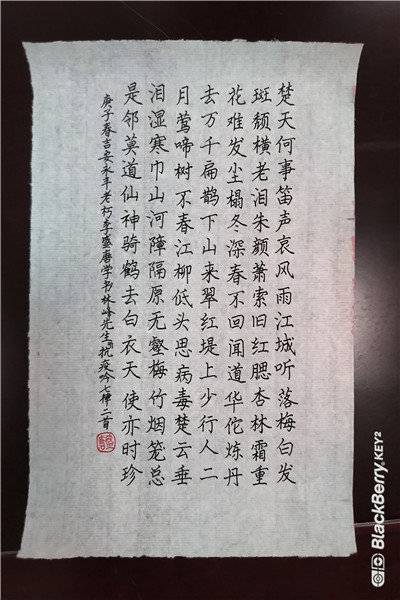 楚天何事笛声哀风雨江城听落梅白发
斑颓横老泪朱颜萧索旧红腮杏林霜重
花难发尘榻冬深春不回闻道华佗炼丹
去万千扁鹊下山来翠红堤上少行人二
月莺啼树不春江柳低头思病毒楚云垂
泪湿寒巾山河障隔原无壑梅竹烟笼总
是邻莫道仙神骑鹤去白衣天使亦时珍
庚子春吉安永丰老朽李盛唐学书林峰先生抗疫吟七律二首
BlackBerry. KEY2